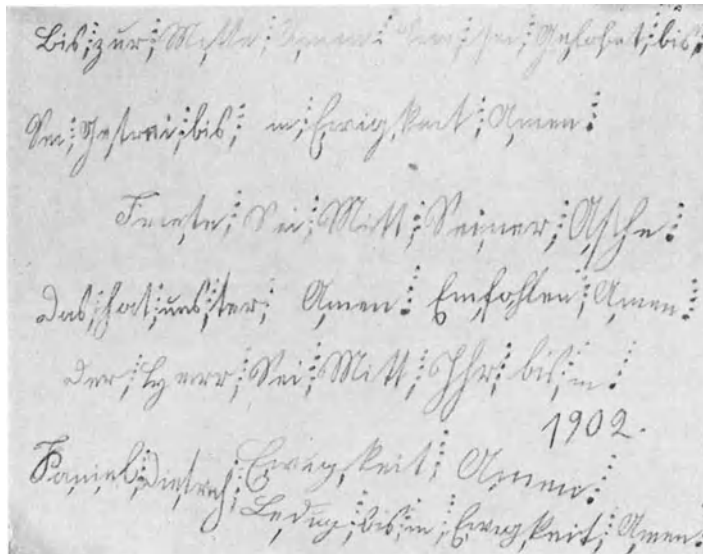 Bis; zur; Mitte; Amen: Amen sei; Gelobet; bis;
Sei; Getrei; bis; in; Ewig,keit; Amen:
Friete; Sei; Mitt; Seiner; Asche:
Das; hat; uns; ter; Amen: Emfohlen; Amen:
Der; Herr; Sei; Mitt; Ihr; bis; in:
1902.
Daniel; Dietrich; Ewig,keit; Amen:
Ledig; bis; in; Ewigkeit; Amen: